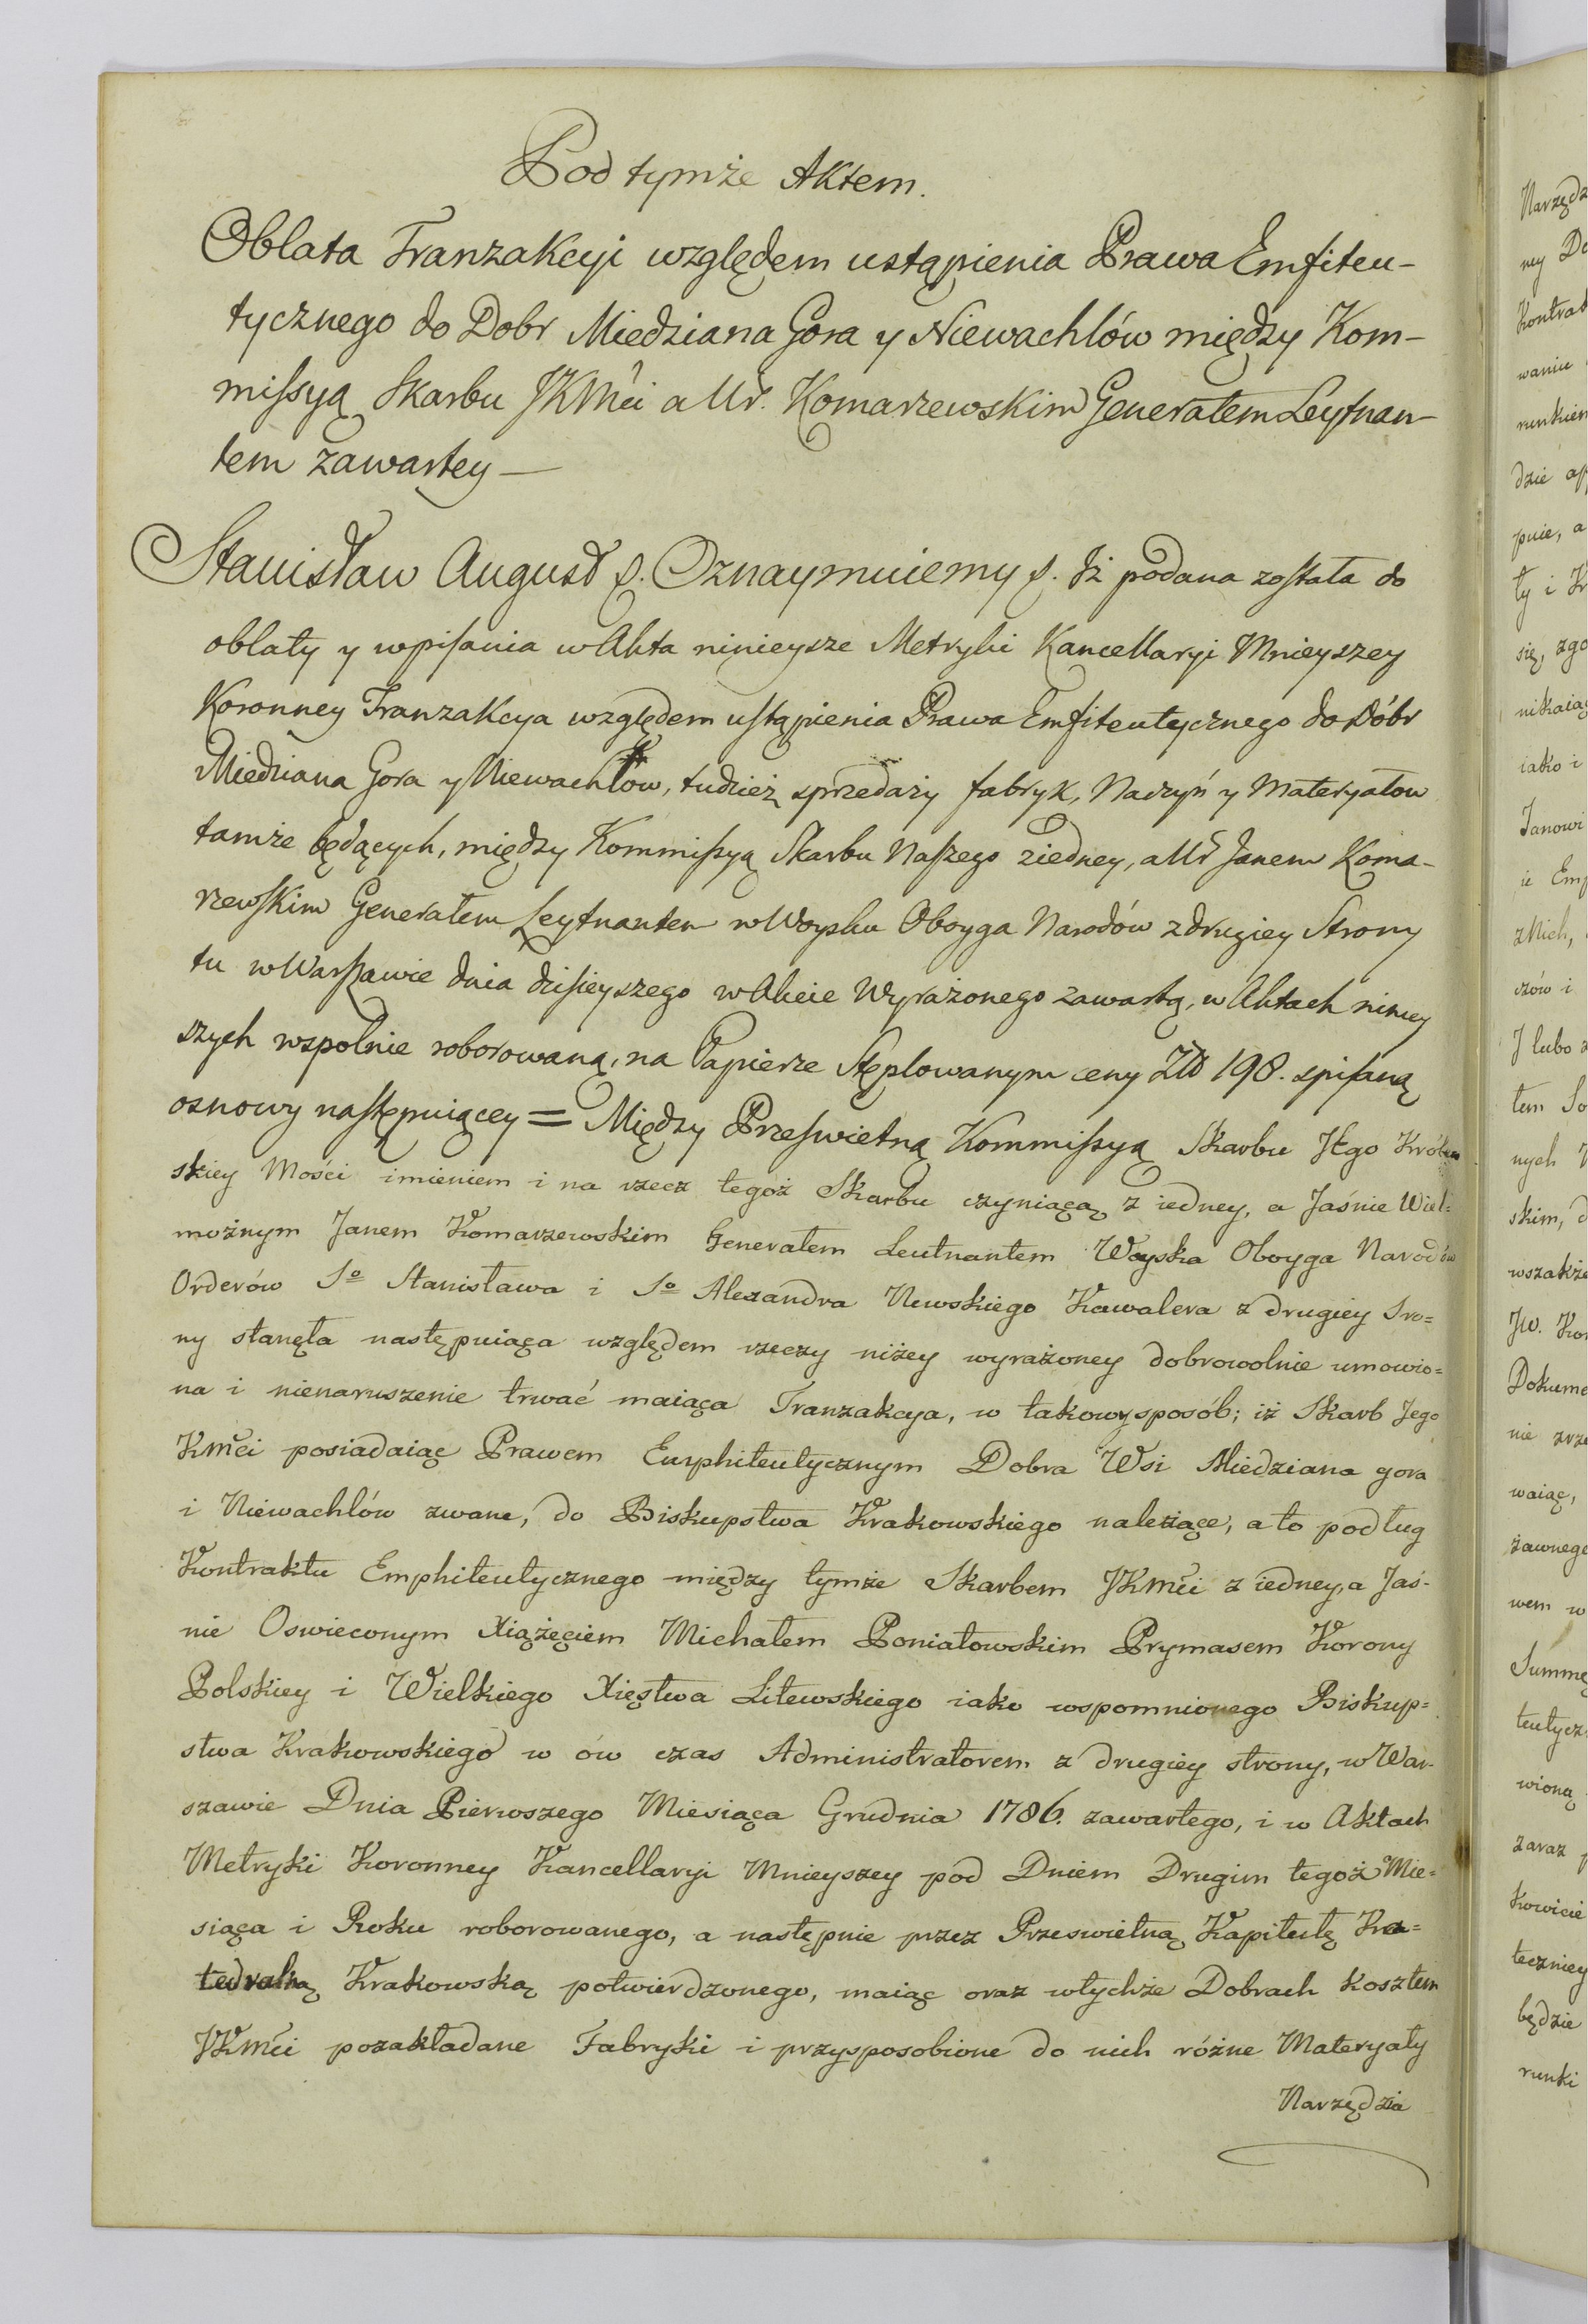 Pod tymże Aktem.
Oblata Tranzakcyi względem ustąpienia Prawa Emfiteu-
tycznego do Dobr Miedziana Gora y Niewachlów między Kom-
missyą Skarbu JKMci a Ur. Komarzewskim Generałem Leytnan-
tem zawartey —
Stanisław August p. Oznaymuiemy p. Iż podana została do
oblaty y wpisania w Akta ninieysze Metryki Kancellaryi Mnieyszey
Koronney Tranzakcya względem ustąpienia Prawa Emfiteutycznego do Dóbr
Miedziana Gora y Niewachlów, tudzież sprzedaży fabryk, Naczyń y Materyałow
tamże będących, między Kommissyą Skarbu Naszego ziedney, a Ur Janem Koma-
rzewskim Generałem Leytnantem w Woysku Oboyga Narodów z drugiey Strony
tu w Warszawie dnia dzisieyszego w Akcie Wyrażonego zawartą, w Aktach niniey
szych wspolnie roborowaną, na Papierze Stęplowanym ceny Złł 198. spisaną
osnowy następuiącey = Między Prześwietną Kommissyą Skarbu JEgo Królew
skiey Mości imieniem i na rzecz tegoż Skarbu czyniącą z iedney, a Jaśnie Wiel=
możnym Janem Komarzewskim Generałem Leutnantem Woyska Oboyga Narodów
Orderów So Stanisława i So Alexandra Newskiego Kawalera z drugiey Stro=
ny stanęła następuiąca względem rzeczy niżey wyrażoney dobrowolnie umowio=
na i nienaruszenie trwać maiąca Tranzakcya, w takowy sposób; iż Skarb Jego
KMci posiadaiąc Prawem Emphiteutycznym Dobra Wsi Miedziana gora
i Niewachlów zwane, do Biskupstwa Krakowskiego należące, a to podług
Kontraktu Emphiteutycznego między tymże Skarbem JKMci z iedney, a Jaś-
nie Oswieconym Xiążęciem Michałem Poniatowskim Prymasem Korony
Polskiey i Wielkiego Xięstwa Litewskiego iako wspomnionego Biskup=
stwa Krakowskiego w ów czas Administratorem z drugiey strony, w War-
szawie Dnia Pierwszego Miesiąca Grudnia 1786. zawartego, i w Aktach
Metryki Koronney Kancellaryi Mnieyszey pod Dniem Drugim tegoż Mie=
siąca i Roku roborowanego, a następnie przez Prześwietną Kapitułę Ka=
tedralną Krakowską potwierdzonego, maiąc oraz w tychże Dobrach kosztem
JKMci pozakładane Fabryki i przysposobione do nich różne Materyały
Narzędzia